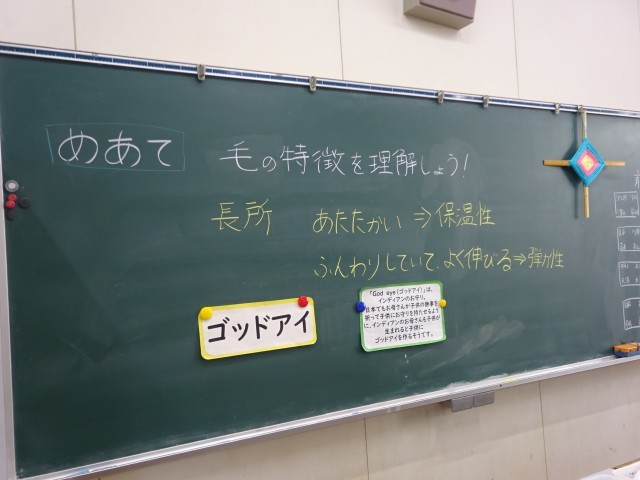 めあて 毛の特徴を理解しょう!
長所 あたたかい⇒保温性
ふんわりしていて、よく伸びる⇒弾力性
ゴッドアイ
「God eye(ゴッドアイ)」は、
インディアンのお守り。
日本でもお母さんが子供の無事を
祈って子供にお守りを持たせるよう
に、インディアンのお母さんも子供が
生まれると子供に
ゴッドアイを作るそうです。